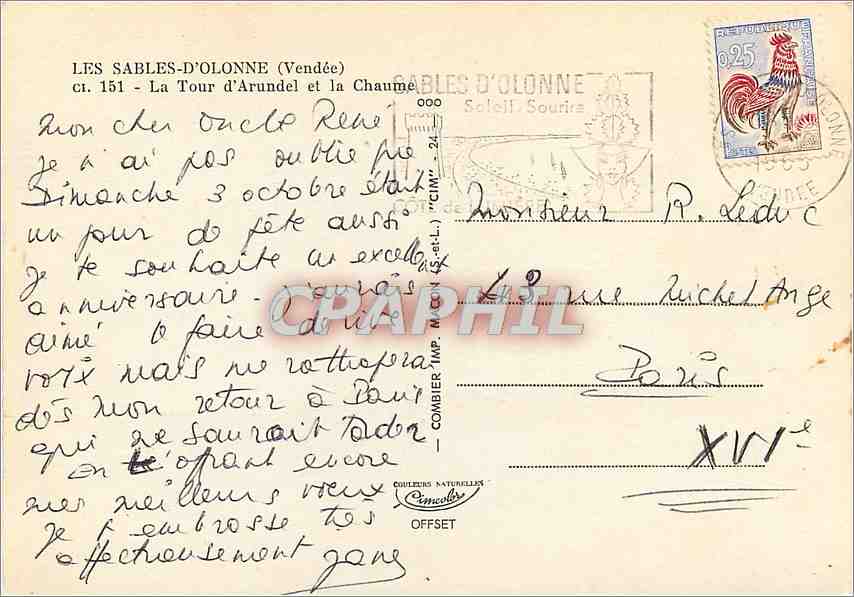 LES SABLES-D'OLONNE (Vendée)
CI. 151 - La Tour d'Arundel et la Chaume
SABLES D'OLONNE
Soleil Sourire
RÉPUBLIQUE FRANÇAISE
0,25
POSTES
OLONNE
VENDEE
Mon cher oncle René
Je n'ai pas oublié que
Dimanche 3 octobre était
un jour de fête aussi
je te souhaite un excellent
anniversaire. J'aurais
aimé le faire de vive
voix mais me rattraperai
dès mon retour à Paris
qui ne saurait tarder
En t'offrant encore
mes meilleurs voeux
Je t'embrasse très
affectueusement Jane
COMBIER IMP. MACON (S.-et-L.) "CIM" - 24
COULEURS NATURELLES
Cimcolor
OFFSET
Monsieur R. Leduc
43 rue Michel Ange
Paris
XVIe
CPAPHIL